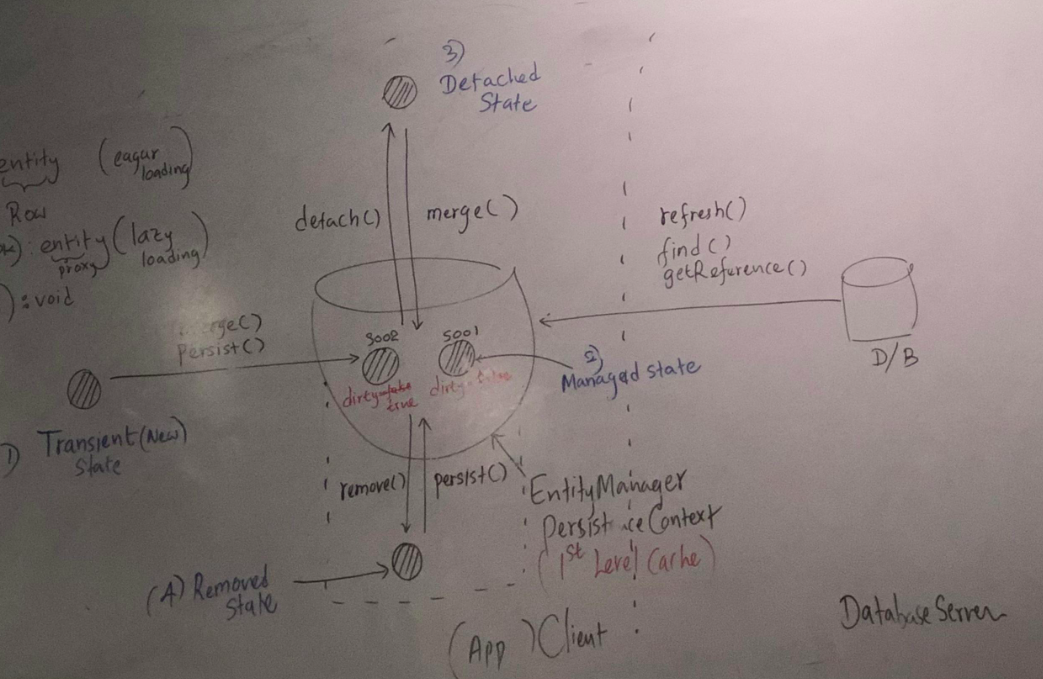 3)
Detached
State
entity (eagar
loading)
Row
): entity (lazy
proxy loading)
) : void
detach()
merge()
refresh()
find()
getReference()
persist()
S002
S001
2)
Managed state
D/B
dirty=
true
dirty=
1) Transient (New)
State
remove()
persist()
EntityManager
Persist ceContext
(1st Level Cache)
(4) Removed
State
(App) Client
Database Server